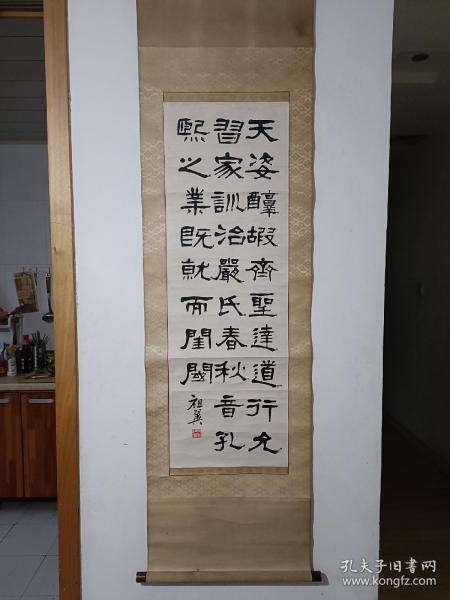 天姿醇嘏齊聖達道行允
習家訓治嚴氏春秋音孔
熙之業既就而閨閾
祖翼
孔夫子旧书网
www.kongfz.com